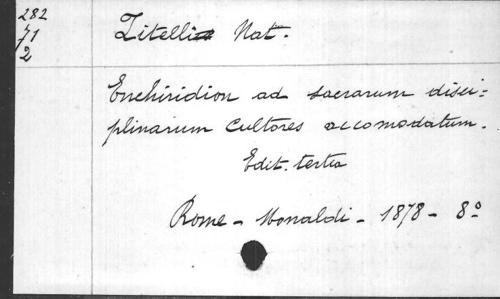 282
71
2
Zitelli Nat.
Enchiridion ad sacrarum disci=
plinarum cultores accomodatum.
Edit. tertia
Rome - Monaldi - 1878 - 8º